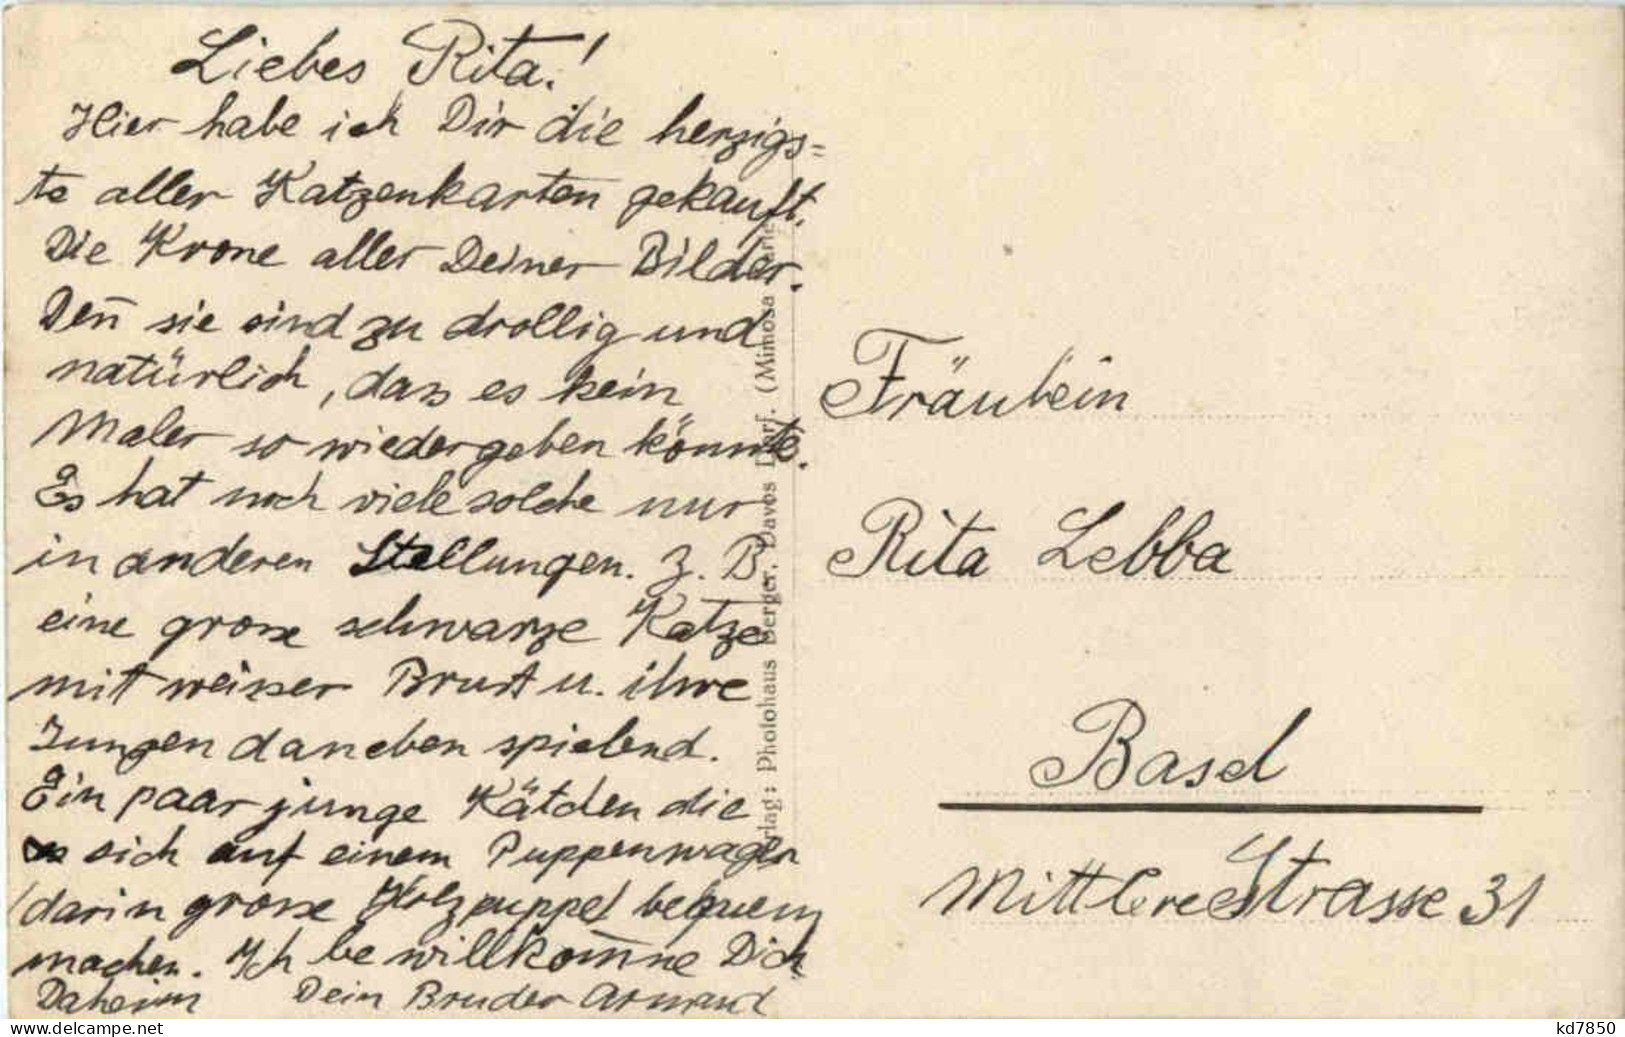 Liebes Rita!
Hier habe ich Dir die herzigs=
te aller Katzenkarten gekauft.
Die Krone aller Deiner Bilder.
Den̄ sie sind zu drollig und
natürlich, dass es kein
Maler so wiedergeben könnte.
Es hat noch viele solche nur
in anderen Stellungen. z. B.
eine grosse schwarze Katze
mit weisser Brust u. ihre
Jungen daneben spielend.
Ein paar junge Kätchen die
sich auf einem Puppenwagen
(darin grosse Holzpuppe) bequem
machen. Ich bewillkom̄ne Dich
Daheim Dein Bruder Armand
Verlag: Photohaus Berger. Davos Dorf. (Mimosa
Fräulein
Rita Lebba
Basel
Mittlere Strasse 31
kd7850
www.delcampe.net